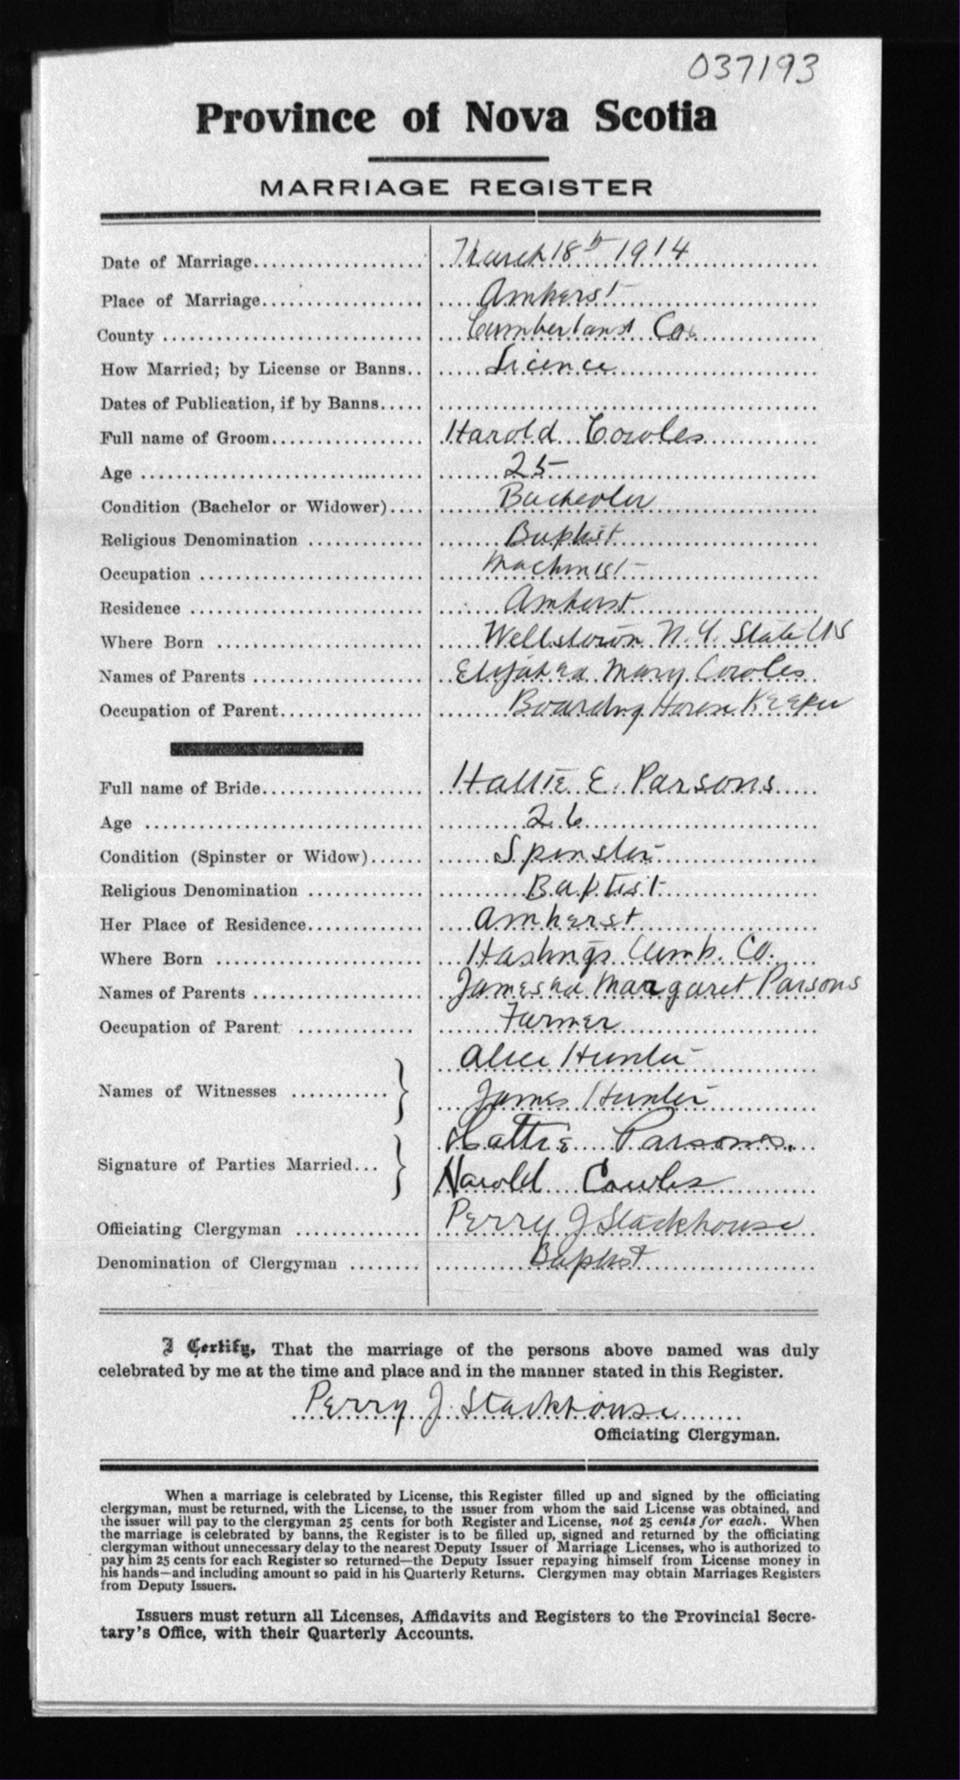 037193
Province of Nova Scotia
MARRIAGE REGISTER
Date of Marriage.................... March 18th 1914
Place of Marriage.................. Amherst
County ............................. Cumberland Co.
How Married; by License or Banns.. Licence
Dates of Publication, if by Banns.....
Full name of Groom................. Harold Cowles
Age ............................... 25
Condition (Bachelor or Widower).... Bachelor
Religious Denomination ............. Baptist
Occupation ......................... Machinist
Residence .......................... Amherst
Where Born ........................ Wellstown N.Y. State US
Names of Parents .................. Elijah and Mary Cowles
Occupation of Parent................ Boarding House Keeper
Full name of Bride.................. Hattie E. Parsons
Age ............................... 26
Condition (Spinster or Widow)...... Spinster
Religious Denomination ............. Baptist
Her Place of Residence............. Amherst
Where Born ........................ Hastings Cumb. Co.
Names of Parents .................. James and Margaret Parsons
Occupation of Parent ............. Farmer
Names of Witnesses ........... } Alice Hunter
James Hunter
Signature of Parties Married... } Hattie Parsons.
Harold Cowles
Officiating Clergyman .............. Perry J Stackhouse
Denomination of Clergyman ........ Baptist
I Certify, That the marriage of the persons above named was duly
celebrated by me at the time and place and in the manner stated in this Register.
Perry J. Stackhouse
Officiating Clergyman.
When a marriage is celebrated by License, this Register filled up and signed by the officiating
clergyman, must be returned, with the License, to the issuer from whom the said License was obtained, and
the issuer will pay to the clergyman 25 cents for both Register and License, not 25 cents for each. When
the marriage is celebrated by banns, the Register is to be filled up, signed and returned by the officiating
clergyman without unnecessary delay to the nearest Deputy Issuer of Marriage Licenses, who is authorized to
pay him 25 cents for each Register so returned—the Deputy Issuer repaying himself from License money in
his hands—and including amount so paid in his Quarterly Returns. Clergymen may obtain Marriages Registers
from Deputy Issuers.
Issuers must return all Licenses, Affidavits and Registers to the Provincial Secre-
tary's Office, with their Quarterly Accounts.